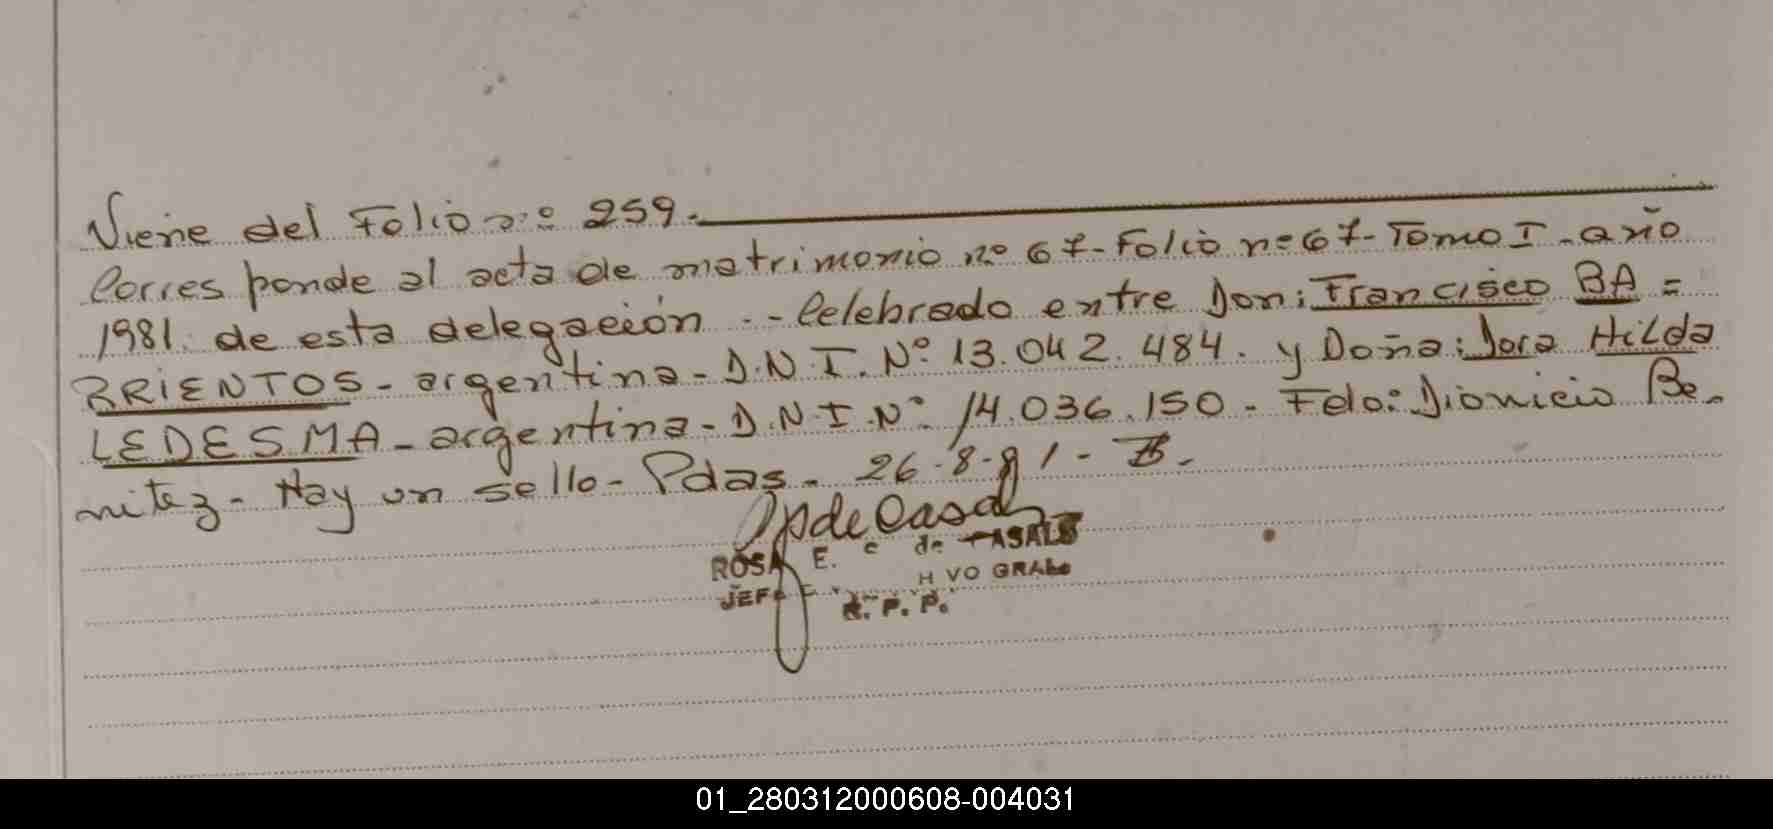 Viene del Folio nº 259.
Corresponde al acta de matrimonio nº 67-Folio nº 67-Tomo I-año
1981. de esta delegación -- Celebrado entre Don: Francisco BA=
RRIENTOS- argentina- D.N.I. Nº 13.042.484. y Doña: Dora Hilda
LEDESMA- argentina- D.N.I. Nº 14.036.150- Fdo: Dionicio Be-
nitez- Hay un sello- Pdas. 26-8-81-
de Casals
ROSA E. C de CASALS
JEFE VO GRAL
R. P. P.
01_280312000608-004031